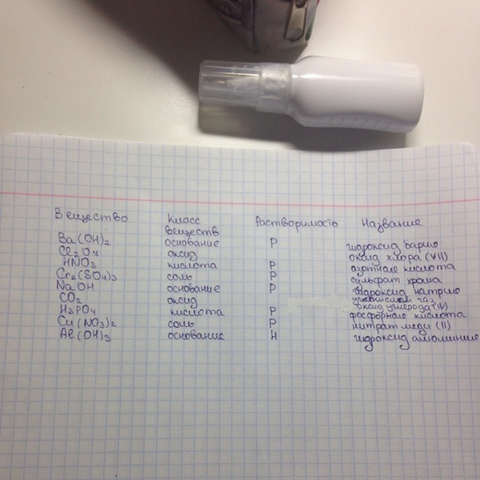 Вещество Класс веществ Растворимость Название
Ba(OH)2 основание Р гидроксид бария
Cl2O7 оксид оксид хлора (VII)
HNO3 кислота Р азотная кислота
Cr2(SO4)3 соль Р сульфат хрома
NaOH основание Р гидроксид натрия
CO2 оксид углекислый газ, оксид углерода (IV)
H2PO4 кислота Р фосфорная кислота
Cu(NO3)2 соль Р нитрат меди (II)
Al(OH)3 основание Н гидроксид алюминия